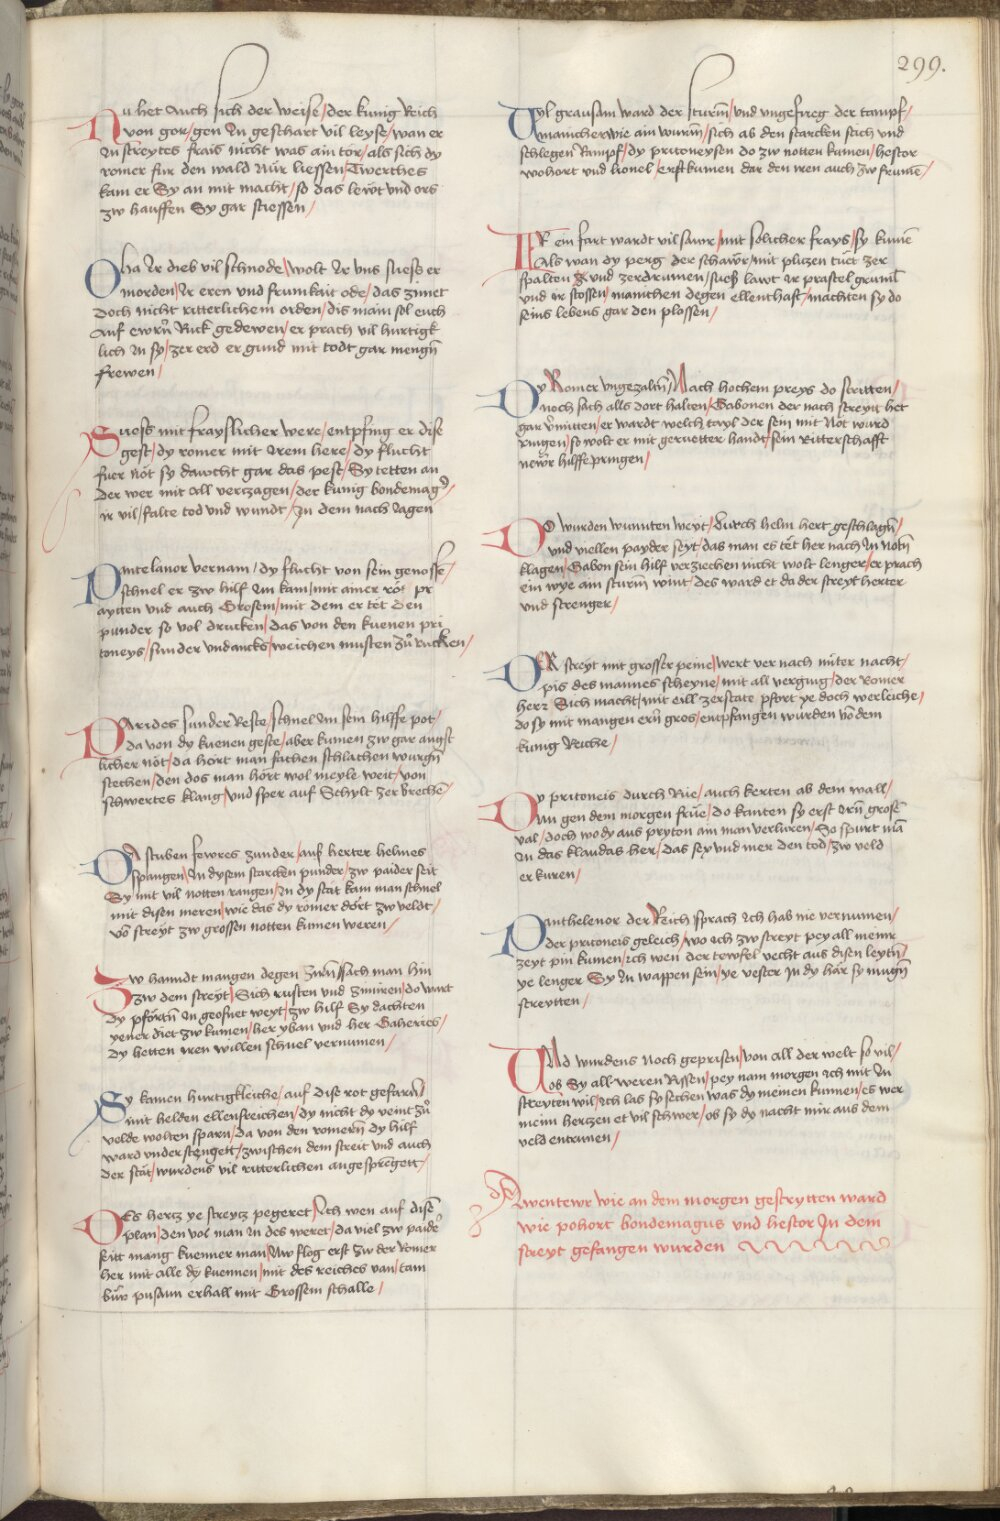 299.
Nu het Auch sich der Weise / der kunig Reich
von gor / gen In geschart vil leyse / wan er
In streytes frais nicht was ain tor / als sich dy
romer fur den wald Nur liessen / Twerches
kam er Sy an mit macht / so das lewt und ors
zw hauffen Sy gar stiessen /
Oha Ir dieb vil schnode / wolt Ir uns suess er
morden / Ir eren und frumkait ode / das zimet
doch nicht ritterlichem orden / dis main sol euch
Auf ewrn Ruck gedewen / er prach vil hurtigk
lich In sy / zer erd er gund mit todt gar mengn
frewen /
Suess mit frayslicher were / entpfing er dise
gest / dy romer mit Irem here / dy flucht
fuer not sy daucht gar das pest / Sy tetten an
der wer mit All verzagen / der kunig bondemag9 /
Ir vil / falte tod und wundt / In dem nach Jagen
Pantelanor vernam / dy flucht von sein genosse /
schnel er zw hilf Im kam / mit ainer rot pr
aytten und auch Grosem / mit dem er tet den
punder so vol drucken / das von den kuenen pri
toneys / sunder undancks / weichen musten zu rucken /
Parides sunder Reste / schnel Im sein hilffe pot /
da von dy kuenen geste / aber kumen zw gar angst
licher not / da hort man sachen schlachen wurgn
stechen / den dos man hort wol meyle weit / von
schwertes klang / und sper auf Schylt zerbreche /
Da stuben fewres zunder / auf herter helmes
spangen / In dysem starcken punder / zw paider seit
Sy mit vil notten rangen / In dy stat kam man schnel
mit disen meren / wie das dy romer dort zw veldt /
vo streyt zw grossen notten kumen weren /
Zw hanndt mangen degen zwan / sach man hin
zw dem streyt / Sich rusten und zimiren / do wart
dy pfortn In geofnet weyt / zw hilf Sy dachten
yener diet zw kumen / her yban und her Gaheries /
dy hetten Iren willen schnel vernumen /
Sy kamen hurtigkleiche / auf dise rot gefarn /
mit helden ellensreichen / dy nicht dy veint zu
velde wolten sparn / da von den romern dy hilf
ward understengett / zwischen dem streit und auch
der stat / wurdens vil ritterlichen angesprengett /
Des hertz ye streytz pegeret / Ich wen auf dise
plan / den vol man In des weret / da viel zw paide
seitt mang kuenner man / Nw flog erst zw der Romer
her mit alle dy kuennen / mit des reiches van / tam
bur pusaun erhall mit Grossem schalle /
Vyl grausam ward der sturm / und ungefueg der tampf /
manicher wie ain wurm / sich ab den starcken stich und
schlegen Rampf / dy pritoneysen do zw notten kumen / hestor
wohort und lionel / erst kumen dar den Iren auch zw frume /
Ir ein fart wardt vil saur / mit solicher frays / sy kume
Als wan dy perg der schawr / mit pluzen tuet zer
spalten und zerdrumen / suess lawt Ir prastel grumt
und Ir stossen / manichen degen ellenthaft / machten sy do
seins lebens gar den plossen /
Dy Romer ungezaltn / Nach hochem preys do stritten /
noch sach alls dort halten / Gabonen der nach streyt het
gar vmitten / er wardt welch tayl der sein mit Not wurd
ringen / so wolt er mit geruetter handt / sein Ritterschafft
newr hilffe pringen /
Do wurden wunnten weyt / durch helm hert geschlagn /
und viellen payder seyt / das man es tet her nach In notn
klagen / Gabon sein hilf verziechen nicht wolt lenger / er prach
ein wye ain sturm wint / des ward et da der streyt herter
und strenger /
Der streyt mit grosser peine / wert ver nach mitter nacht /
pis des mannes scheyne / mit all verging / der Romer
herz Sich macht / mit eill zer state pfort ye doch werleiche /
do sy mit mangen ern gros / entpfangen wurden vo dem
kunig Reiche /
Dy pritoneis durch Rue / auch kerten ab dem wall /
Nun gen dem morgen frue / do kanten sy erst Irn grose
val / doch wo dy aus pryton ain man verluren / So spurt ma
In das klaudas her / das sex und mer den tod / zw veld
erkuren /
Panthelenor der Reich / sprach Ich hab nie vernumen /
der pritoneis geleich / wo Ich zw streyt pey all meinr
zeyt pin kumen / Ich wen der tewfel vecht aus disen leytn /
ye lenger Sy In wappen sein / ye vester In dy har sy mugn
streytten /
Und wurdens noch geprisen / von all der welt so vil /
ob Sy all weren Rissen / pey nam morgen Ich mit In
streyten wil / Ich las sy sechen was dy meinen kunnen / es wer
meim hertzen et vil schwer / ob sy dy nacht mir aus dem
veld entrinen /
Awentewr wie an dem morgen gestrytten ward
wie pohort bondemagus und hestor In dem
streyt gefangen wurden